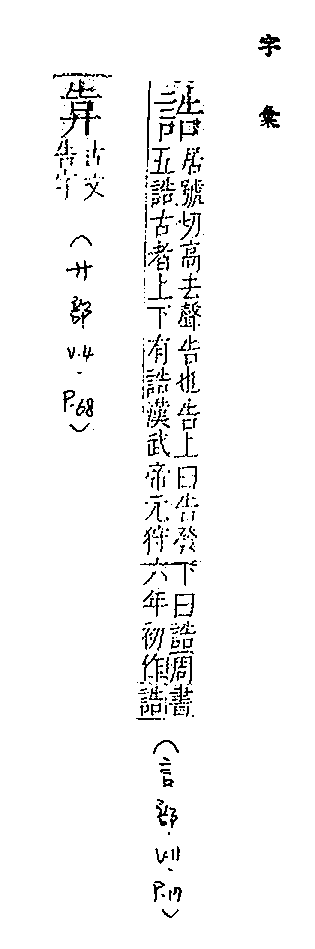 字彙
誥
居號切高去聲告也告上曰告發下曰誥周書
五誥古者上下有誥漢武帝元狩六年初作誥
(言部.V.11.P.17)
𢍎
古文
告字
(廾部V.4.P.68)